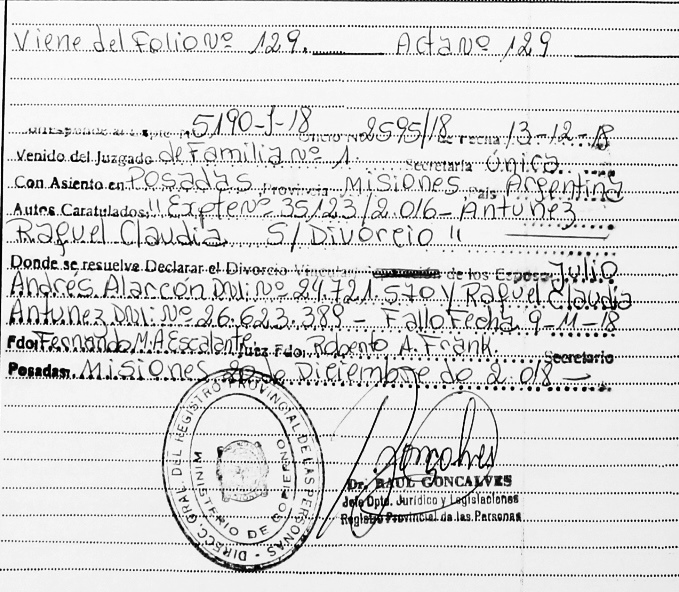 Viene del Folio Nº 129. Acta Nº 129
Corresponde al Expte. Nº 5190-J-18 Oficio Nº 2595/18 de Fecha 13-12-18
Venido del Juzgado de Familia Nº 1. Secretaria única.
Con Asiento en Posadas Provincia Misiones País Argentina
Autos Caratulados: "Expte Nº 35123/2.016 - Antunez
Raquel Claudia S/Divorcio"
Donde se resuelve Declarar el Divorcio Vincular de los Esposos Julio
Andrés Alarcón DNI: Nº 24.721.570 y Raquel Claudia
Antunez DNI: Nº 26.623.389 - Fallo Fecha 9-11-18
Fdo: Fernando M.A Escalante. Juez Fdo: Roberto A. Frank. Secretario
Posadas, Misiones 20 de Diciembre de 2.018 -
DIRECC. GRAL. DEL REGISTRO PROVINCIAL DE LAS PERSONAS -
MINISTERIO DE GOBIERNO
Goncalves
Dr. RAUL GONCALVES
Jefe Dpto. Juridico y Legislaciones
Registro Provincial de las Personas